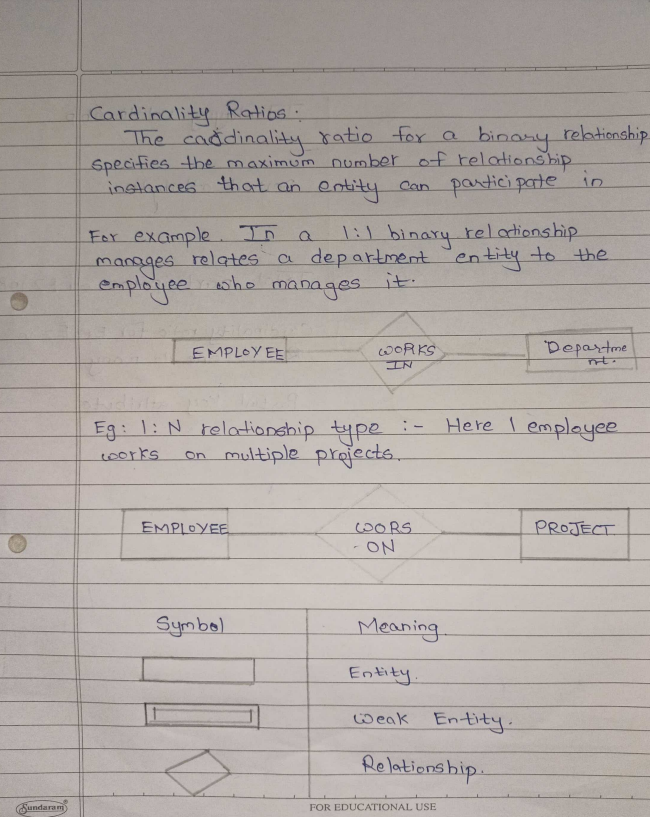 Cardinality Ratios :
The cardinality ratio for a binary relationship
specifies the maximum number of relationship
instances that an entity can participate in
For example. In a 1:1 binary relationship
manages relates a department entity to the
employee who manages it.
EMPLOYEE WORKS IN Departme nt.
Eg: 1: N relationship type :- Here 1 employee
works on multiple projects.
EMPLOYEE WORS - ON PROJECT
Symbol Meaning.
Entity.
Weak Entity.
Relationship.
Sundaram FOR EDUCATIONAL USE